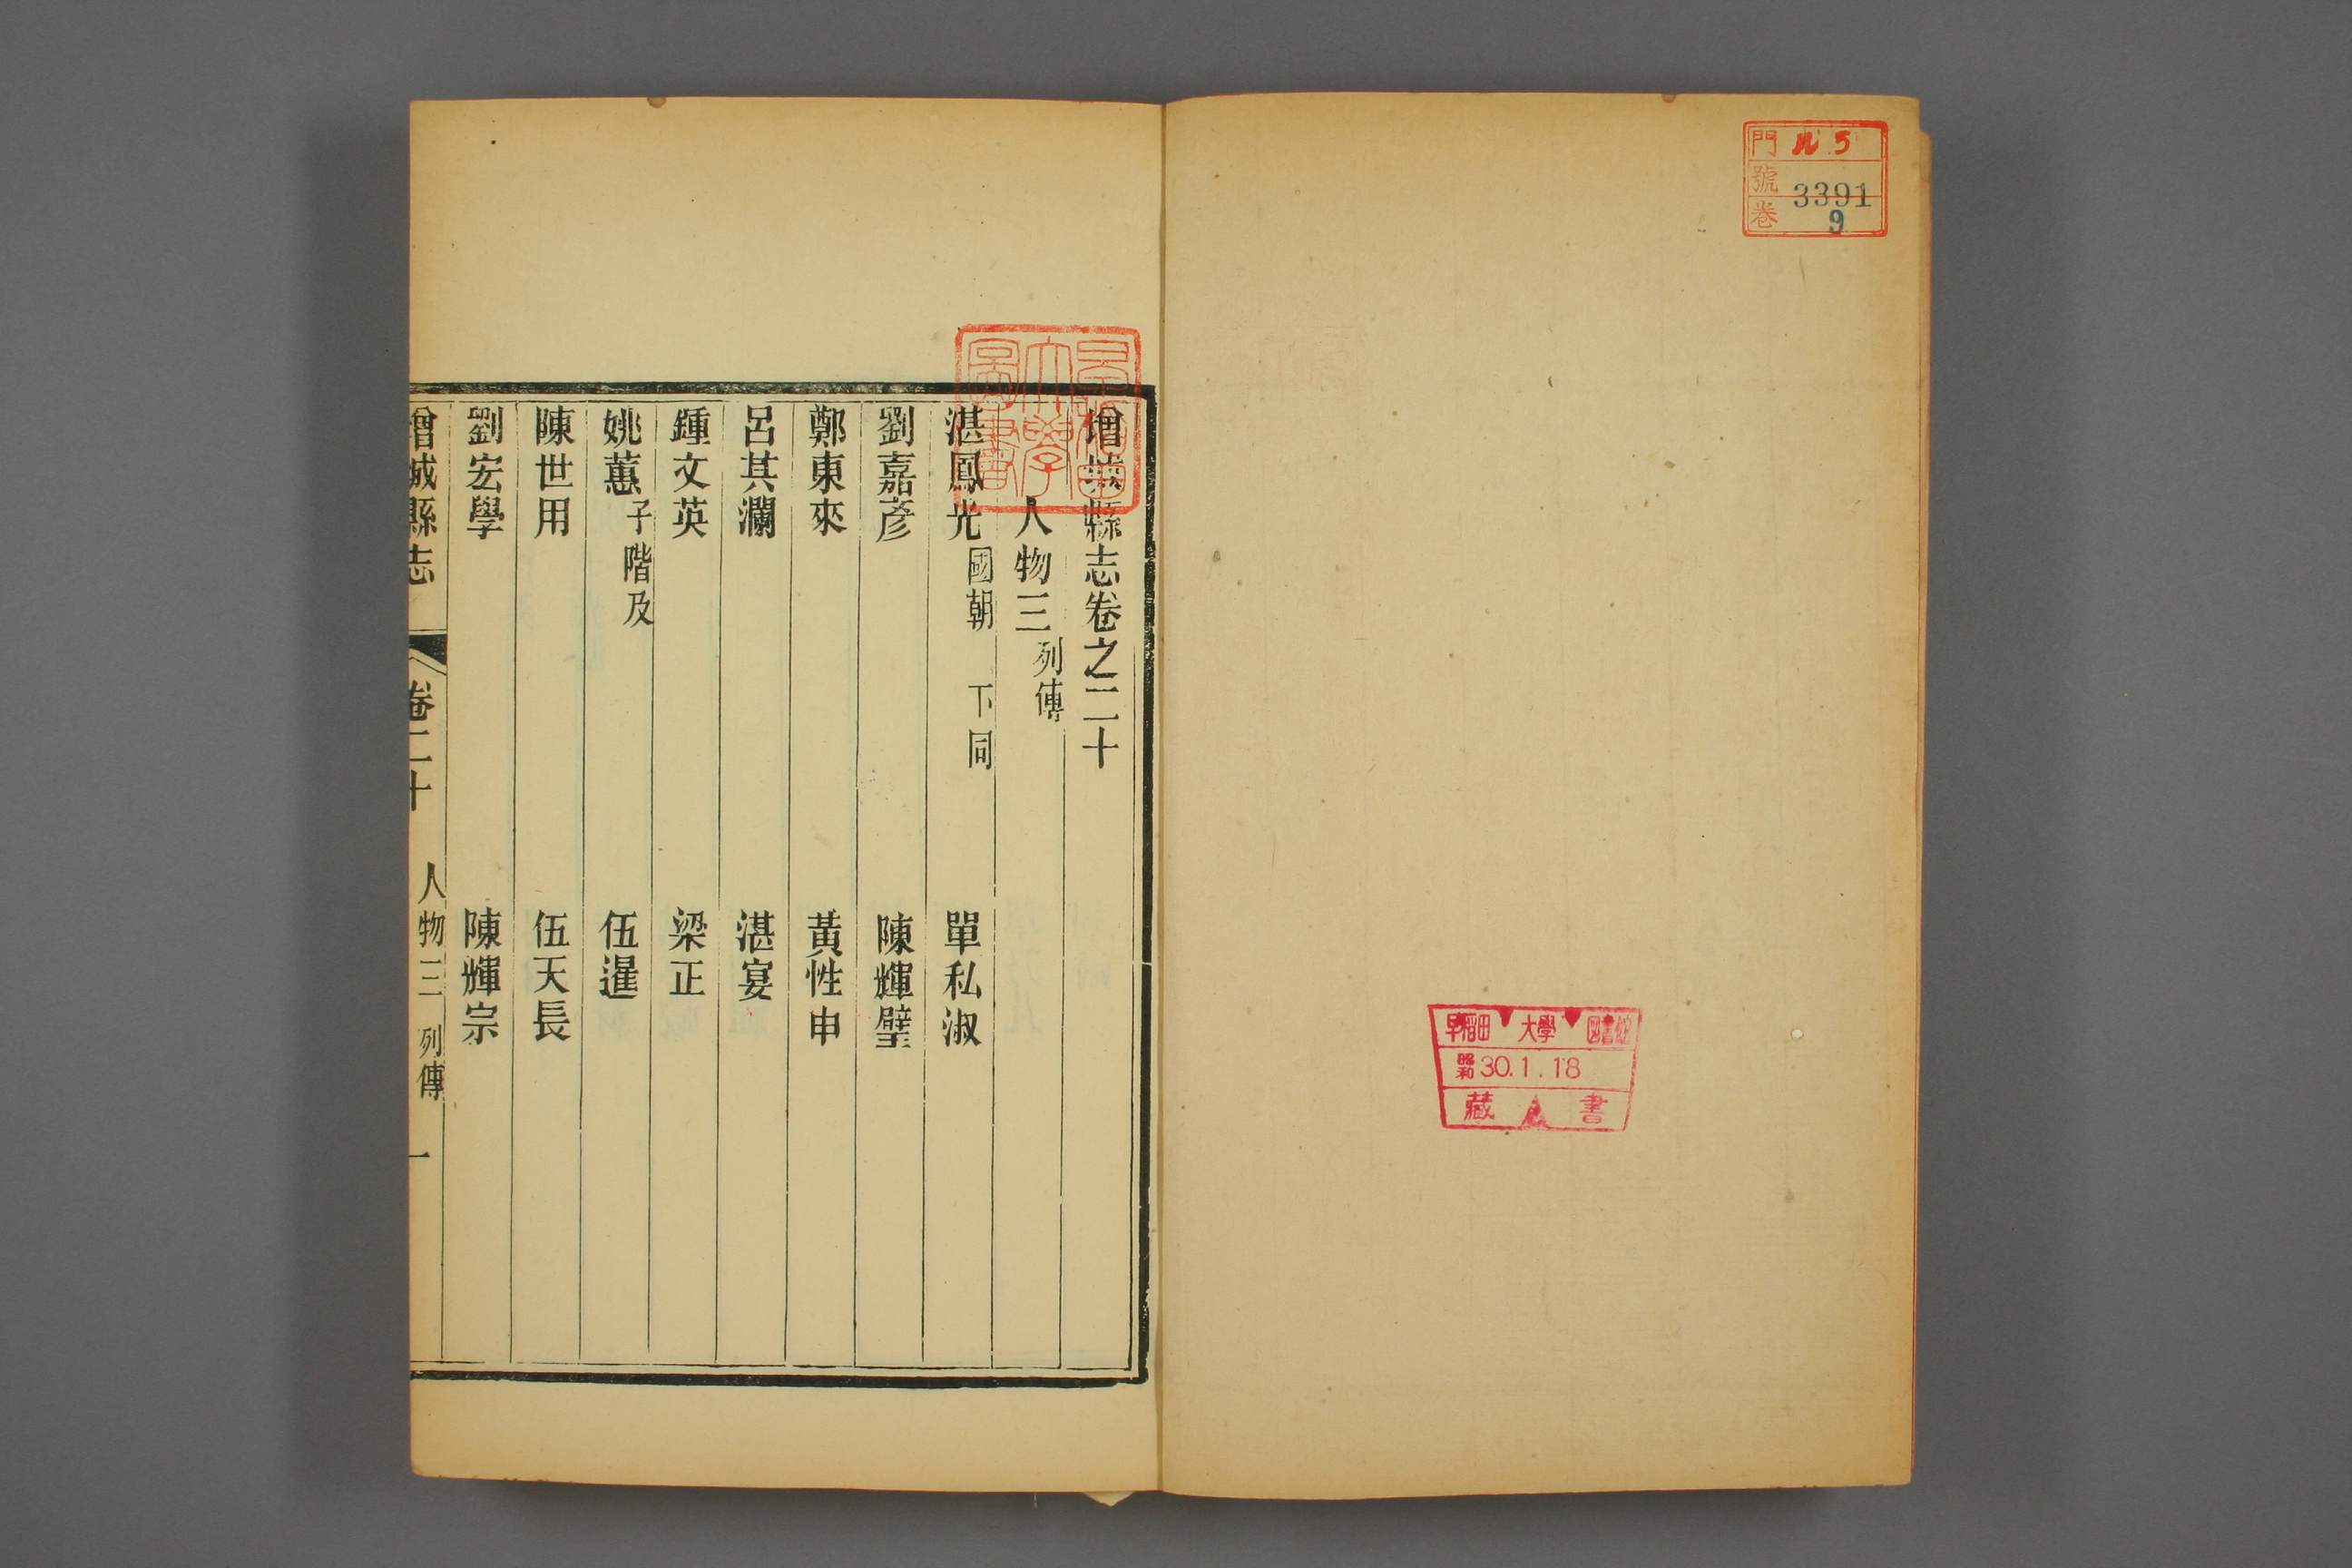 門 ル5
號 3391
卷 9
早稻田大學圖書館
昭和30.1.18
藏書
早稻田大學圖書
增城縣志卷之二十
人物三 列傳
湛鳳光 國朝 下同 單私淑
劉嘉彥 陳輝璧
鄭東來 黃性申
呂其瀾 湛宴
鍾文英 梁正
姚蕙 子階及 伍暹
陳世用 伍天長
劉宏學 陳輝宗
增城縣志 卷二十 人物三 列傳 一